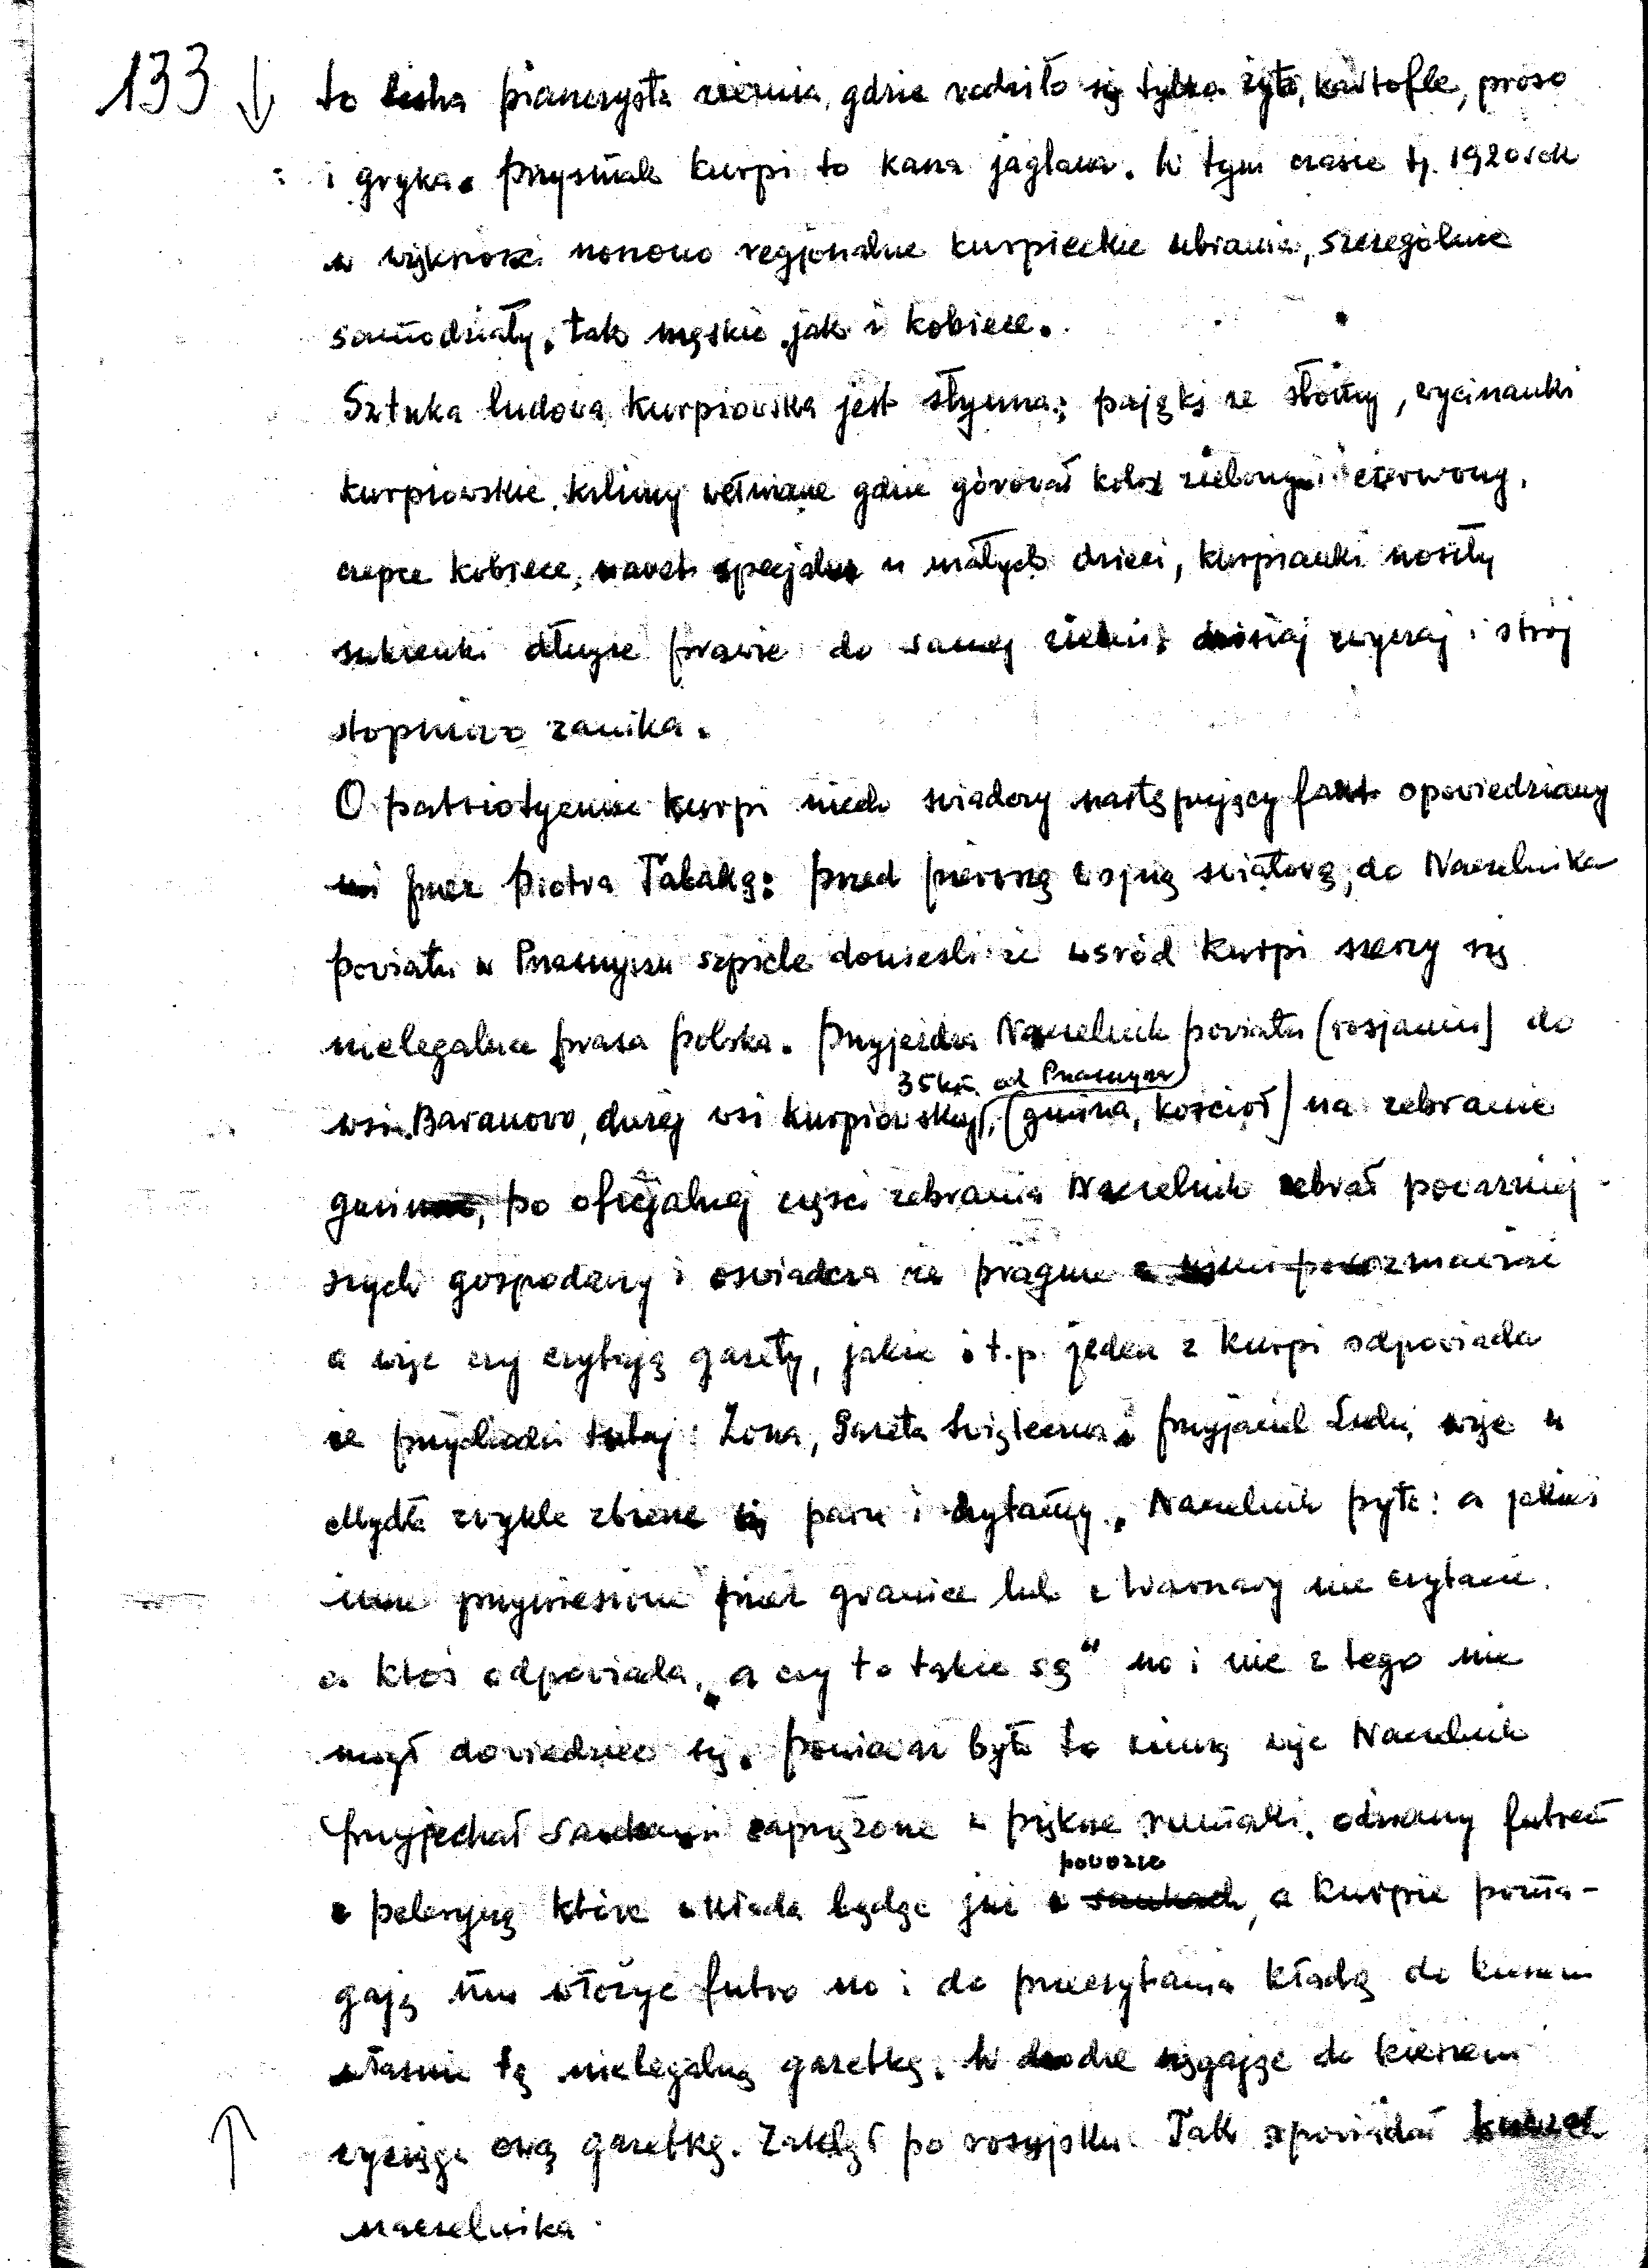 133 ↓ to licha piaszczysta ziemia, gdzie rodziło się tylko żyto, kartofle, proso
i gryka. Przysmak Kurpi to kasza jaglana. W tym czasie tj. 1920 rok
w większości noszono regjonalne kurpieckie ubrania, szczególnie
samodziały, tak męskie jak i kobiece.
Sztuka ludowa kurpiowska jest słynna; pająki ze słomy, wycinanki
kurpiowskie, kilimy wełniane gdzie górował kolor zielony i czerwony,
czepce kobiece, nawet specjalne u małych dzieci, kurpianki nosiły
sukienki długie prawie do samej ziemi; dzisiaj zwyczaj i strój
stopniowo zanika.
O patriotyzmie Kurpi niech świadczy następujący fakt opowiedziany
mi przez Piotra Tabakę: przed pierwszą wojną światową, do Naczelnika
powiatu w Przasnyszu szpicle donieśli że wśród Kurpi szerzy się
nielegalna prasa polska. Przyjeżdża Naczelnik powiatu (rosjanin) do
35 km. od Przasnysza
wsi Baranowo, dużej wsi kurpiowskiej, (gmina, kościół) na zebranie
gminne, po oficjalnej części zebrania Naczelnik zebrał poważniej
szych gospodarzy i oświadcza że pragnie z nimi porozmawiać
a więc czy czytają gazety, jakie i t.p. jeden z Kurpi odpowiada
że przychodzi tutaj: Zorza, Gazeta Świąteczna i Przyjaciel Ludu, więc u
zwykle zbierze się paru i czytamy. Naczelnik pyta: a jakieś
inne przywiezione przez granice lub z Warszawy nie czytacie.
a ktoś odpowiada, „a czy to takie są“ no i nic z tego nie
mógł dowiedzieć się. Ponieważ było to zimą więc Naczelnik
przyjechał sankami zaprzężone w piękne rumaki, odziany futrem
powozie
z peleryną które wkłada będąc już w sankach, a Kurpie poma-
gają mu włożyć futro no i do przeczytania kładą do kieszeni
właśnie tą nielegalną gazetkę. W drodze sięgając do kieszeni
wyciąga ową gazetkę. Zaklął po rosyjsku. Tak opowiadał
↑ naczelnika.